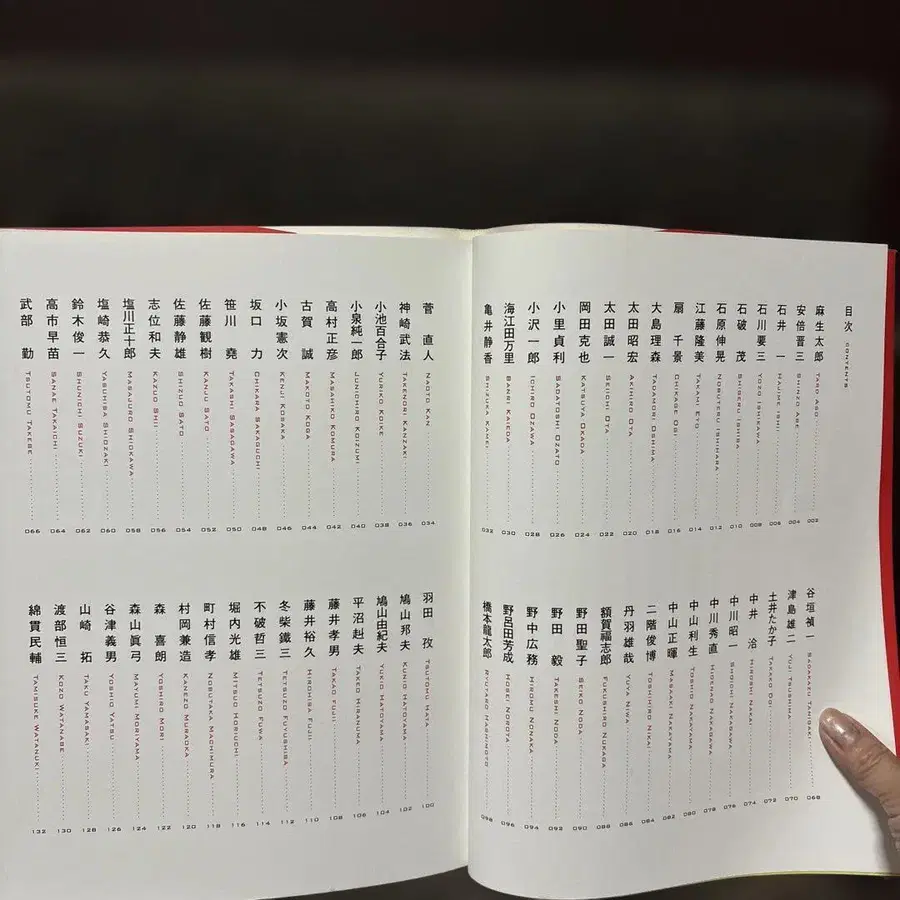 目次 CONTENTS
麻生太郎 TARO ASO 002
安倍晋三 SHINZO ABE 004
石井　一 HAJIME ISHII 006
石川要三 YOZO ISHIKAWA 008
石破　茂 SHIGERU ISHIBA 010
石原伸晃 NOBUTERU ISHIHARA 012
江藤隆美 TAKAMI ETO 014
扇　千景 CHIKAGE OGI 016
大島理森 TADAMORI OSHIMA 018
太田昭宏 AKIHIRO OTA 020
太田誠一 SEIICHI OTA 022
岡田克也 KATSUYA OKADA 024
小里貞利 SADATOSHI OZATO 026
小沢一郎 ICHIRO OZAWA 028
海江田万里 BANRI KAIEDA 030
亀井静香 SHIZUKA KAMEI 032
谷垣禎一 SADAKAZU TANIGAKI 068
津島雄二 YUJI TSUSHIMA 070
土井たか子 TAKAKO DOI 072
中井　洽 HIROSHI NAKAI 074
中川昭一 SHOICHI NAKAGAWA 076
中川秀直 HIDENAO NAKAGAWA 078
中山利生 TOSHIO NAKAYAMA 080
中山正暉 MASAAKI NAKAYAMA 082
二階俊博 TOSHIHIRO NIKAI 084
丹羽雄哉 YUYA NIWA 086
額賀福志郎 FUKUSHIRO NUKAGA 088
野田聖子 SEIKO NODA 090
野田　毅 TAKESHI NODA 092
野中広務 HIROMU NONAKA 094
野呂田芳成 HOSEI NOROTA 096
橋本龍太郎 RYUTARO HASHIMOTO 098
菅　直人 NAOTO KAN 034
神崎武法 TAKENORI KANZAKI 036
小池百合子 YURIKO KOIKE 038
小泉純一郎 JUNICHIRO KOIZUMI 040
高村正彦 MASAHIKO KOMURA 042
古賀　誠 MAKOTO KOGA 044
小坂憲次 KENJI KOSAKA 046
坂口　力 CHIKARA SAKAGUCHI 048
笹川　堯 TAKASHI SASAGAWA 050
佐藤観樹 KANJU SATO 052
佐藤静雄 SHIZUO SATO 054
志位和夫 KAZUO SHII 056
塩川正十郎 MASAJURO SHIOKAWA 058
塩崎恭久 YASUHISA SHIOZAKI 060
鈴木俊一 SHUNICHI SUZUKI 062
高市早苗 SANAE TAKAICHI 064
武部　勤 TSUTOMU TAKEBE 066
羽田　孜 TSUTOMU HATA 100
鳩山邦夫 KUNIO HATOYAMA 102
鳩山由紀夫 YUKIO HATOYAMA 104
平沼赳夫 TAKEO HIRANUMA 106
藤井孝男 TAKAO FUJII 108
藤井裕久 HIROHISA FUJII 110
冬柴鐵三 TETSUZO FUYUSHIBA 112
不破哲三 TETSUZO FUWA 114
堀内光雄 MITSUO HORIUCHI 116
町村信孝 NOBUTAKA MACHIMURA 118
村岡兼造 KANEZO MURAOKA 120
森　喜朗 YOSHIRO MORI 122
森山眞弓 MAYUMI MORIYAMA 124
谷津義男 YOSHIO YATSU 126
山崎　拓 TAKU YAMASAKI 128
渡部恒三 KOZO WATANABE 130
綿貫民輔 TAMISUKE WATANUKI 132